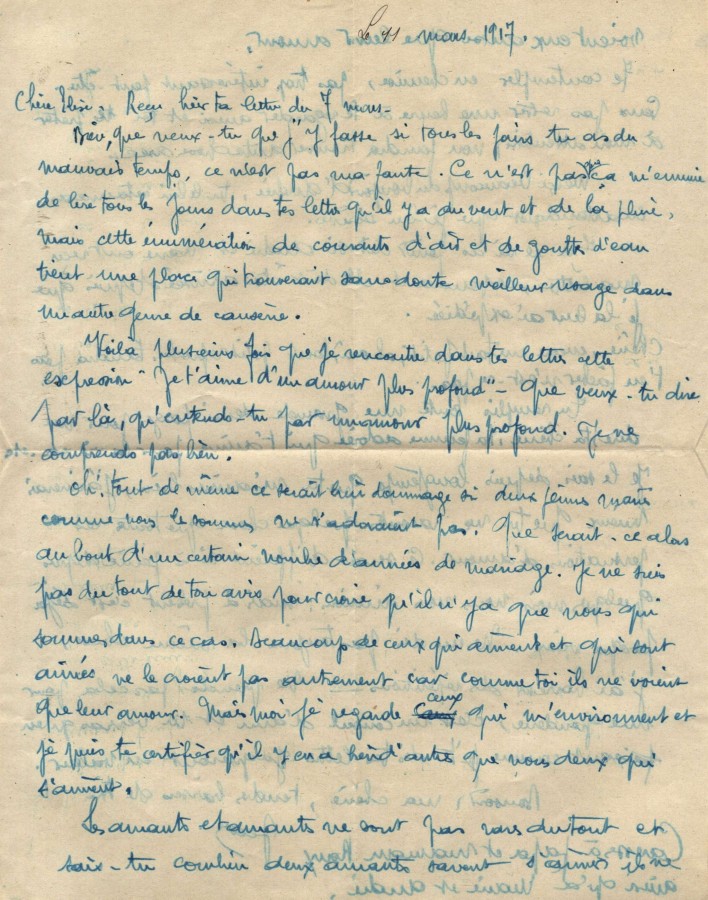 Le 11 mars 1917.
Chère Elise. Reçu hier ta lettre du 7 mars-
Bien, que veux-tu que j'y fasse si tous les jours tu as du
mauvais temps, ce n'est pas ma faute. Ce n'est pas que ça m'ennuie
de lire tous les jours dans tes lettres qu'il y a du vent et de la pluie,
mais cette énumération de courants d'air et de gouttes d'eau
tient une place qui trouverait sans doute meilleur usage dans
un autre genre de causerie.
Voilà plusieurs fois que je rencontre dans tes lettres cette
expression "Je t'aime d'un amour plus profond" - que veux-tu dire
par là, qu'entends-tu par un amour plus profond. Je ne
comprends pas bien.
Oh! tout de même ce serait bien dommage si deux jeunes mariés
comme nous le sommes ne s'adoraient pas. Que serait-ce alors
au bout d'un certain nombre d'années de mariage. Je ne suis
pas du tout de ton avis pour croire qu'il n'y a que nous qui
sommes dans ce cas. Beaucoup de ceux qui aiment et qui sont
aimés ne le croient pas autrement car comme toi ils ne voient
que leur amour. Mais moi je regarde ceux qui m'environnent et
je puis te certifier qu'il y en a bien d'autres que nous deux qui
s'aiment.
Les amants et amants ne sont pas rares du tout et
sais-tu combien deux amants savent s'aimer ils ne